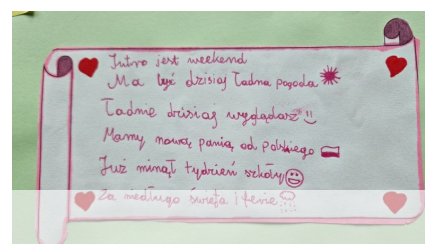 Jutro jest weekend
Ma być dzisiaj ładna pogoda
Ładnie dzisiaj wyglądasz
Mamy nową panią od polskiego
Już minął tydzień szkoły
Za niedługo święta i ferie